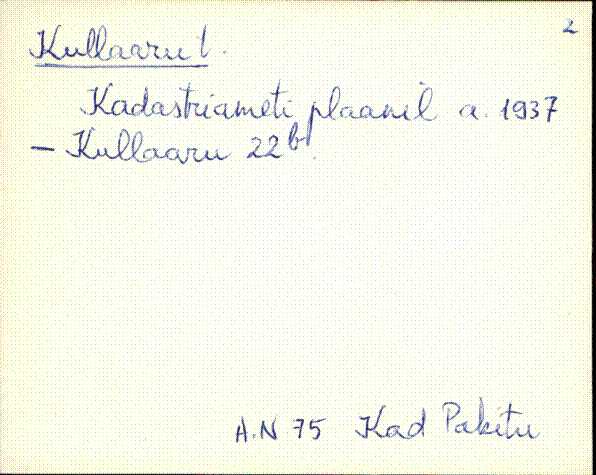 2
Kullaaru t.
Kadastriameti plaanil a. 1937
— Kullaaru 22b.
A.N 75 Kad Pakitu